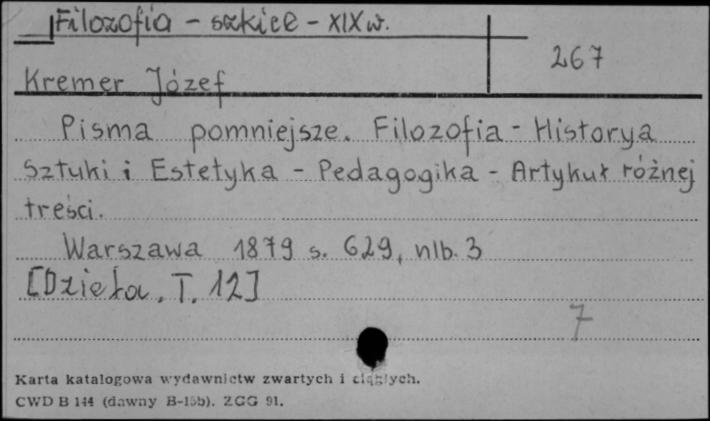 Filozofia - szkice - XIX w.
267
Kremer Józef
Pisma pomniejsze. Filozofia - Historya
Sztuki i Estetyka - Pedagogika - Artykuł różnej
treści.
Warszawa 1879 s. 629, nlb. 3
[Dzieła. T. 12]
7
Karta katalogowa wydawnictw zwartych i ciągłych.
CWD B 144 (dawny B-15b). ZGG 91.